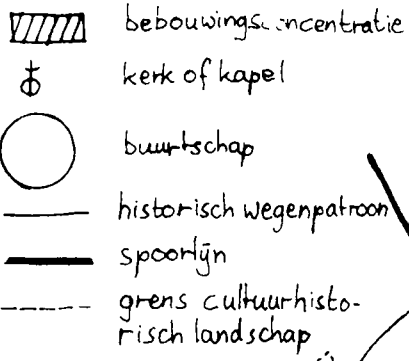 bebouwingsconcentratie
kerk of kapel
buurtschap
historisch wegenpatroon
spoorlijn
grens cultuurhisto-
risch landschap